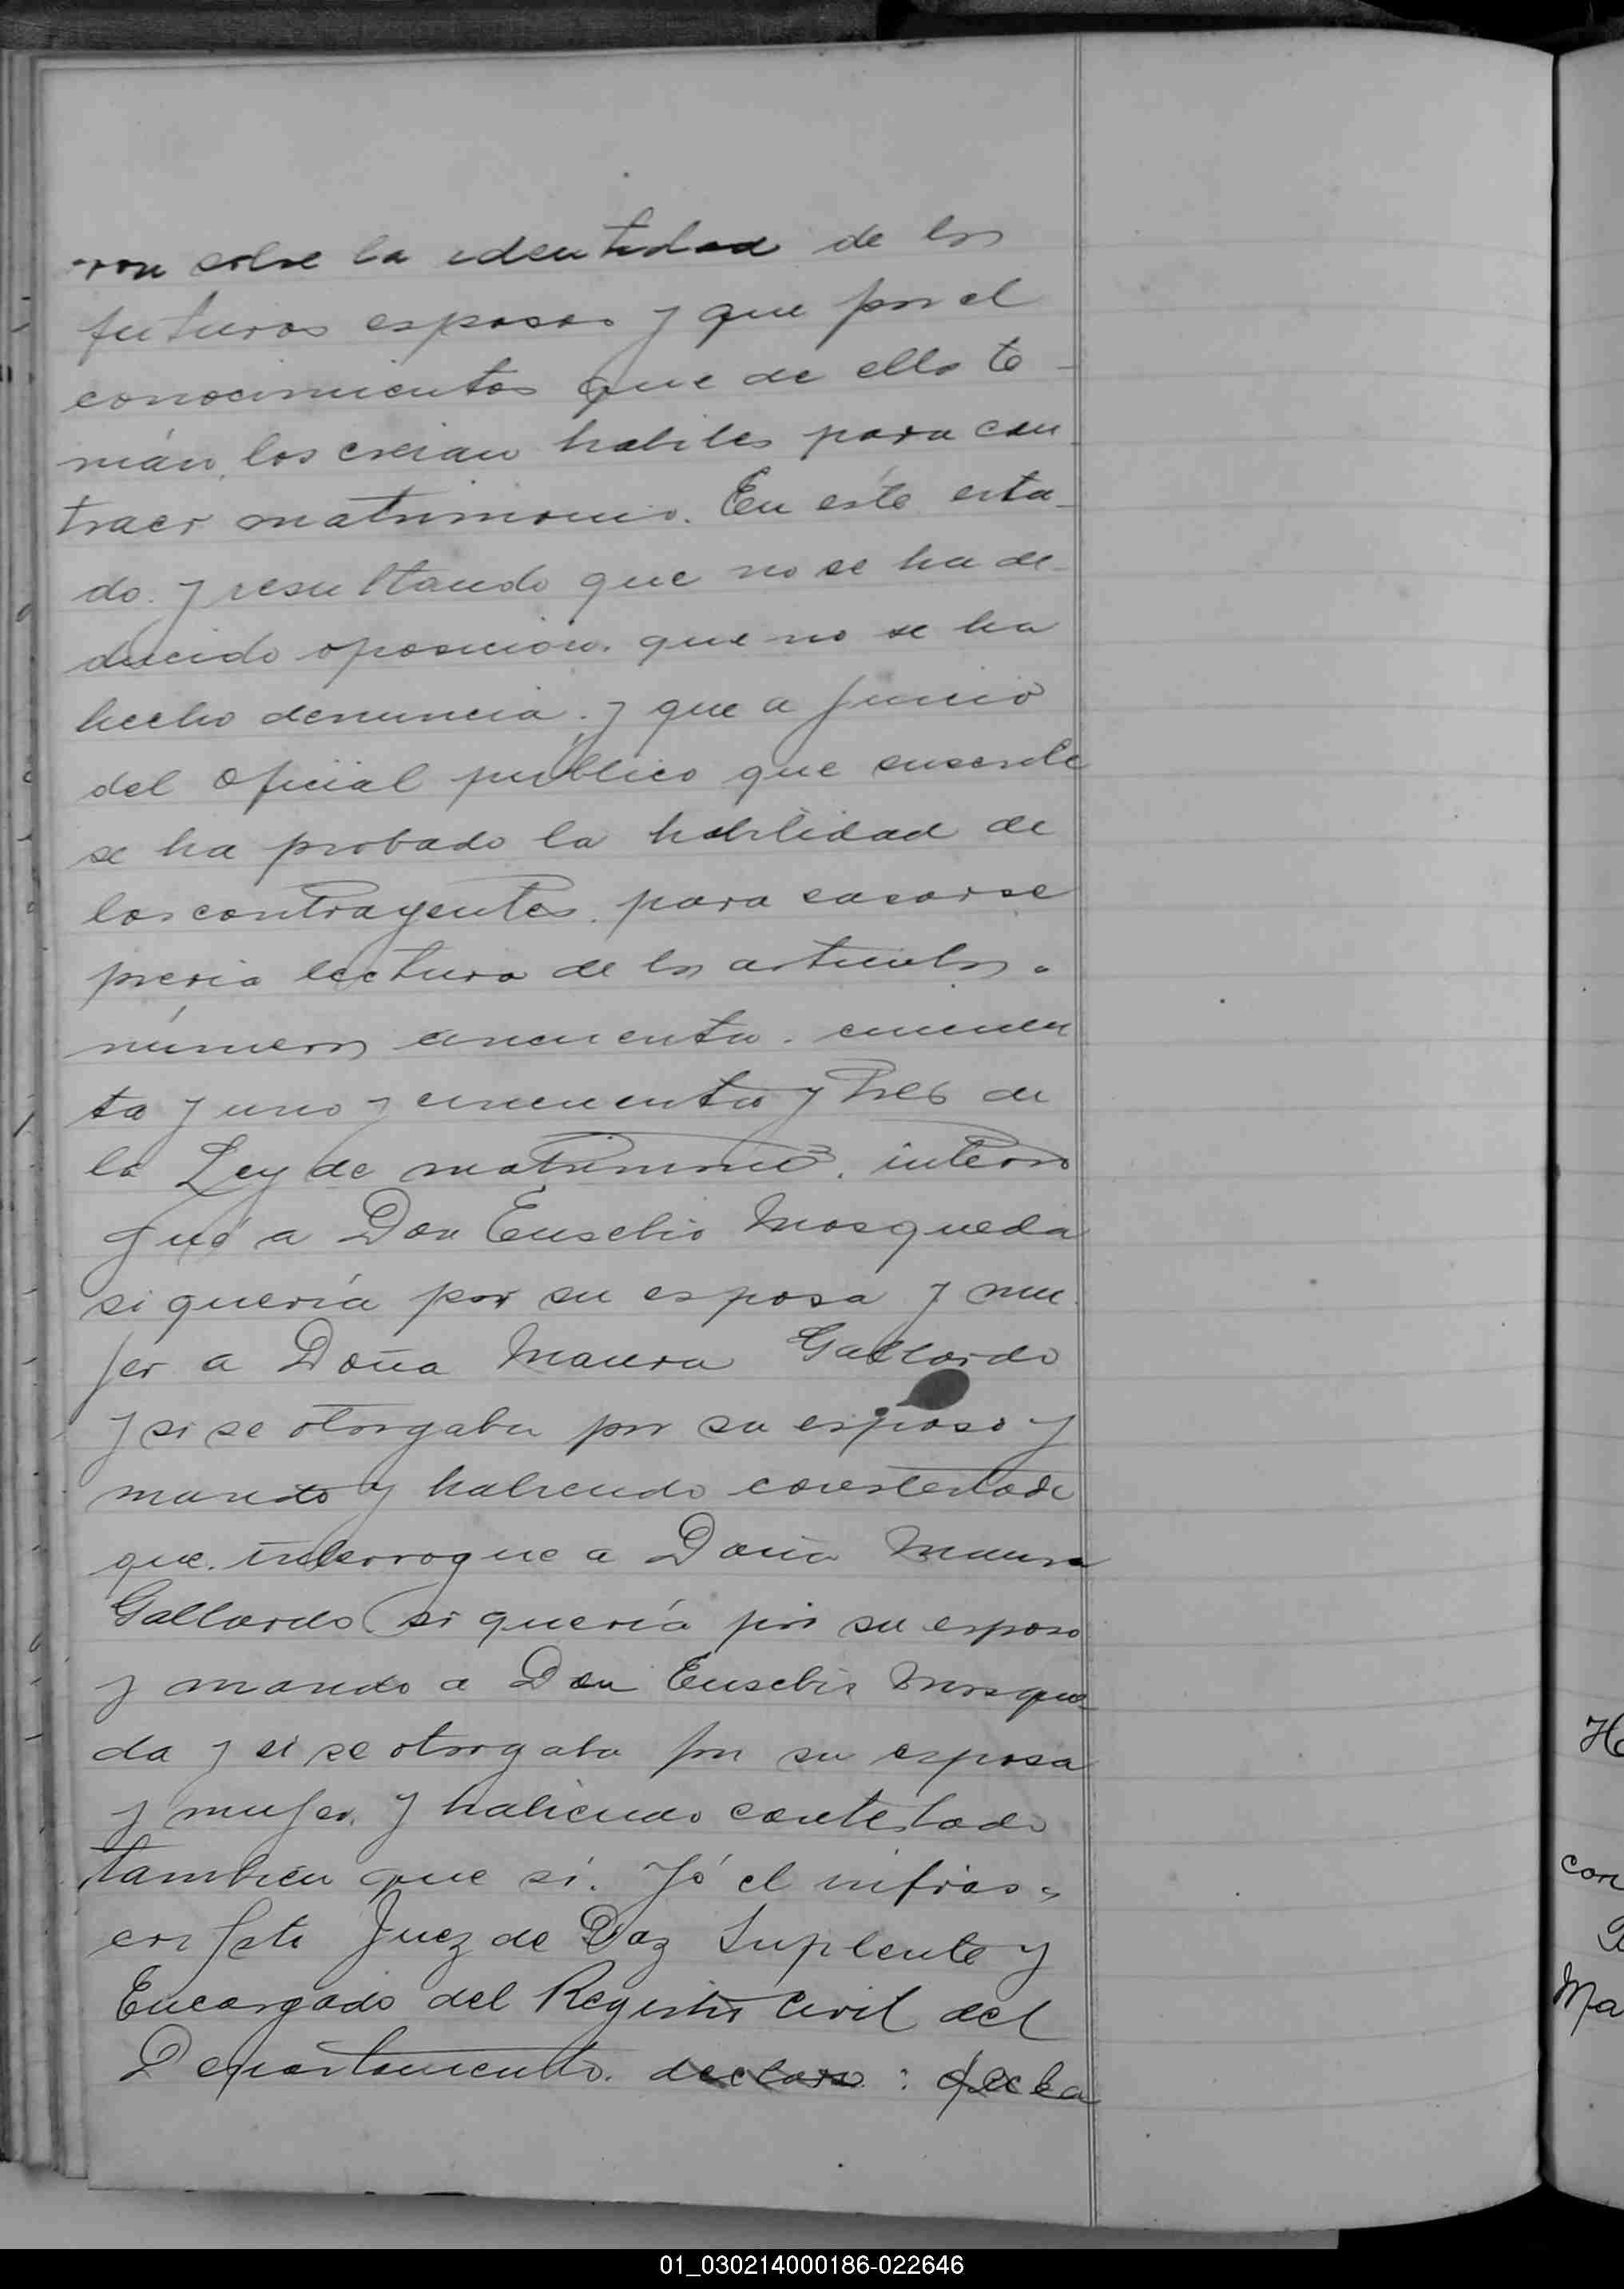 ron sobre la identidad de los
futuros esposos y que por el
conocimientos que de ello te-
nián, los creian habiles para con-
traer matrimonio. En este esta-
do. y resultando que no se ha de-
ducido oposicion. que no se ha
hecho denuncia. y que a Juicio
del oficial público que suscribe
se ha probado la habilidad de
los contrayentes. para casarse
previa lectura de los articulos.
números cincuenta. cincuen
ta y uno y cincuenta y tres de
la Ley de matrimonio. interro
gué a Don Eusebio Mosqueda
si quería por su esposa y mu-
jer a Doña Maura Gallardo
y si se otorgaba por su esposo y
marido y habiendo contestado
que. interrogue a Doña Maura
Gallardo si quería por su esposo
y marido a Don Eusebio Mosque-
da y si se otorgaba por su esposa
y mujer. y habiendo contestado
tambien que sí. Yó el infras-
cripto Juez de Paz Suplente y
Encargado del Registro Civil del
Departamento. declaro:
Ho
con
Ma
01_030214000186-022646